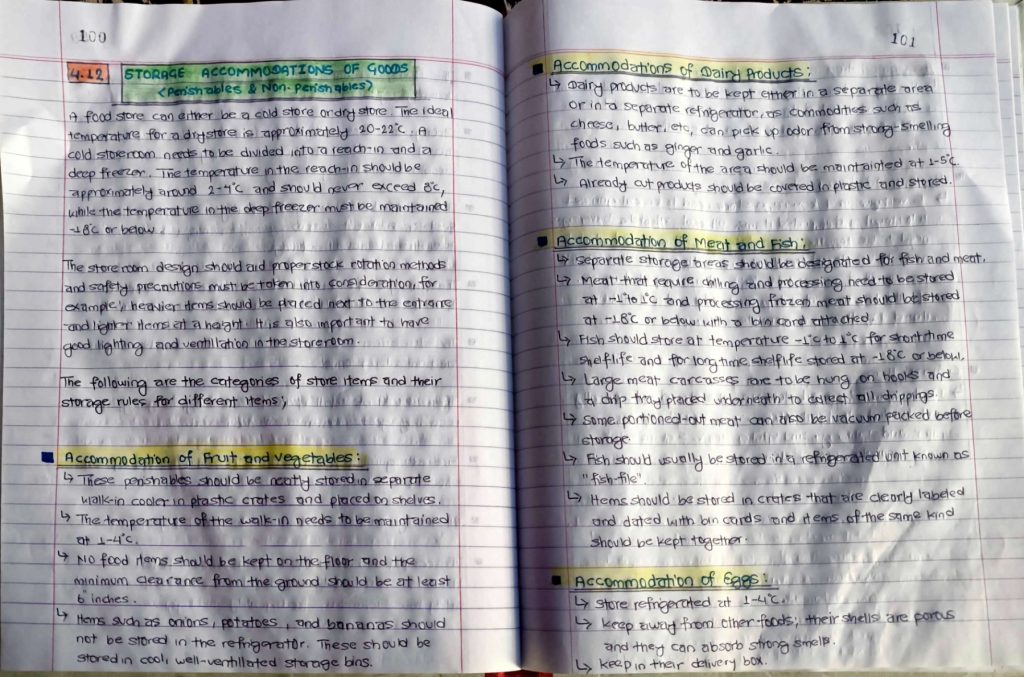 100
4.12 STORAGE ACCOMMODATIONS OF GOODS
(Perishables & Non-Perishables)
A food store can either be a cold store or dry store. The ideal
temperature for a drystore is approximately 20-22°C. A
cold storeroom needs to be divided into a reach-in and a
deep freezer. The temperature in the reach-in should be
approximately around 2-4°C and should never exceed 8°C,
while the temperature in the deep freezer must be maintained
-18°C or below.
The store room design should aid proper stock rotation methods
and safety precautions must be taken into consideration, for
example, heavier items should be placed next to the entrance
and lighter items at a height. It is also important to have
good lighting and ventillation in the storeroom.
The following are the categories of store items and their
storage rules for different items;
Accommodation of Fruit and vegetables:
↳ These perishables should be neatly stored in separate
walk-in cooler in plastic crates and placed on shelves.
↳ The temperature of the walk-in needs to be maintained
at 1-4°C.
↳ No food items should be kept on the floor and the
minimum clearance from the ground should be at least
6 inches.
↳ Items such as onions, potatoes, and bananas should
not be stored in the refrigerator. These should be
stored in cool, well-ventillated storage bins.
101
Accommodations of Dairy Products:
↳ Dairy products are to be kept either in a separate area
or in a separate refrigerator, as commodities such as
cheese, butter, etc, can pick up odor from strong-smelling
foods such as ginger and garlic.
↳ The temperature of the area should be maintainted at 1-5°C
↳ Already cut products should be covered in plastic and stored.
Accommodation of Meat and Fish:
↳ Separate storage areas should be designated for fish and meat.
↳ Meat that require chilling and processing need to be stored
at -1° to 1°C and processing frozen meat should be stored
at -18°C or below with a bin card attached.
↳ Fish should store at temperature -1°C to 1°C for short time
shelflife and for long time shelflife stored at -18°C or below.
↳ Large meat carcasses are to be hung on hooks and
a drip tray placed underneath to collect all drippings.
↳ Some portioned-out meat can also be vacuum packed before
storage.
↳ Fish should usually be stored in a refrigerated unit known as
"fish-file".
↳ Items should be stored in crates that are clearly labeled
and dated with bin cards and items of the same kind
should be kept together.
Accommodation of Eggs:
↳ Store refrigerated at 1-4°C.
↳ Keep away from other foods; their shells are porous
and they can absorb strong smells.
↳ Keep in their delivery box.